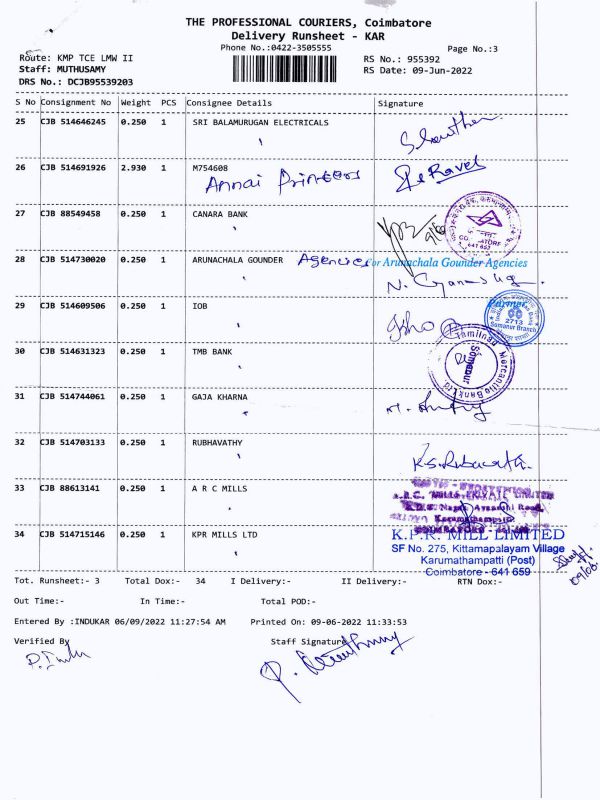 THE PROFESSIONAL COURIERS, Coimbatore
Delivery Runsheet - KAR
Phone No.:0422-3505555
Page No.:3
Route: KMP TCE LMW II
RS No.: 955392
Staff: MUTHUSAMY
RS Date: 09-Jun-2022
DRS No.: DCJB95539203
S No Consignment No Weight PCS Consignee Details Signature
25 CJB 514646245 0.250 1 SRI BALAMURUGAN ELECTRICALS
26 CJB 514691926 2.930 1 M754608
Annai Printers
27 CJB 88549458 0.250 1 CANARA BANK
641 653
28 CJB 514730020 0.250 1 ARUNACHALA GOUNDER Agencies
For Arunachala Gounder Agencies
Partner
29 CJB 514609506 0.250 1 IOB
2713
Somanur Branch
30 CJB 514631323 0.250 1 TMB BANK
Tamilnad Mercantile Bank Ltd
Somanur
31 CJB 514744061 0.250 1 GAJA KHARNA
32 CJB 514703133 0.250 1 RUBHAVATHY
33 CJB 88613141 0.250 1 A R C MILLS
A.R.C. MILLS PRIVATE LIMITED
34 CJB 514715146 0.250 1 KPR MILLS LTD
K.P.R. MILL LIMITED
SF No. 275, Kittamapalayam Village
Karumathampatti (Post)
Coimbatore - 641 659
Tot. Runsheet:- 3 Total Dox:- 34 I Delivery:- II Delivery:- RTN Dox:-
Out Time:- In Time:- Total POD:-
Entered By :INDUKAR 06/09/2022 11:27:54 AM Printed On: 09-06-2022 11:33:53
Verified By
Staff Signature
P. Indu